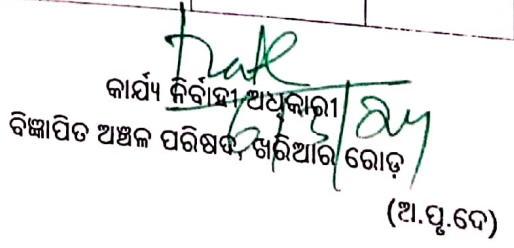 କାର୍ଯ୍ୟ ନିର୍ବାହୀ ଅଧିକାରୀ
ବିଜ୍ଞାପିତ ଅଞ୍ଚଳ ପରିଷଦ, ଖରିଆର ରୋଡ଼
(ଅ.ପୃ.ଦେ)